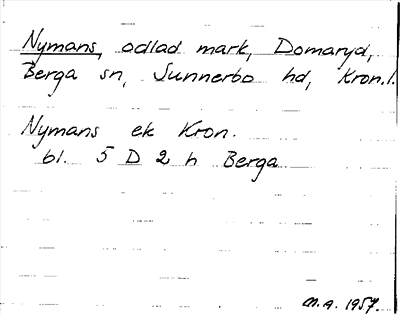 Nymans, odlad mark, Domaryd,
Berga sn, Sunnerbo hd, Kron.l.
Nymans ek Kron.
bl. 5 D 2 h Berga
M.A. 1957.